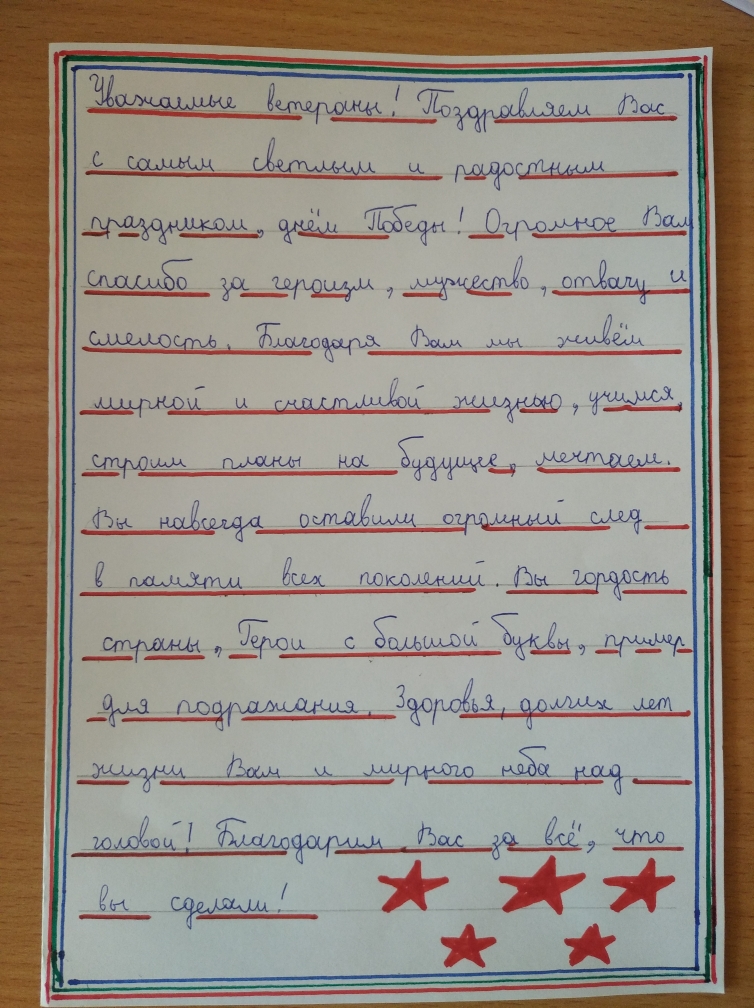 Уважаемые ветераны! Поздравляем Вас
с самым светлым и радостным
праздником, днём Победы! Огромное Вам
спасибо за героизм, мужество, отвагу и
смелость. Благодаря Вам мы живём
мирной и счастливой жизнью, учимся,
строим планы на будущее, мечтаем.
Вы навсегда оставили огромный след
в памяти всех поколений. Вы гордость
страны, Герои с большой буквы, пример
для подражания. Здоровья, долгих лет
жизни Вам и мирного неба над
головой! Благодарим Вас за всё, что
вы сделали!